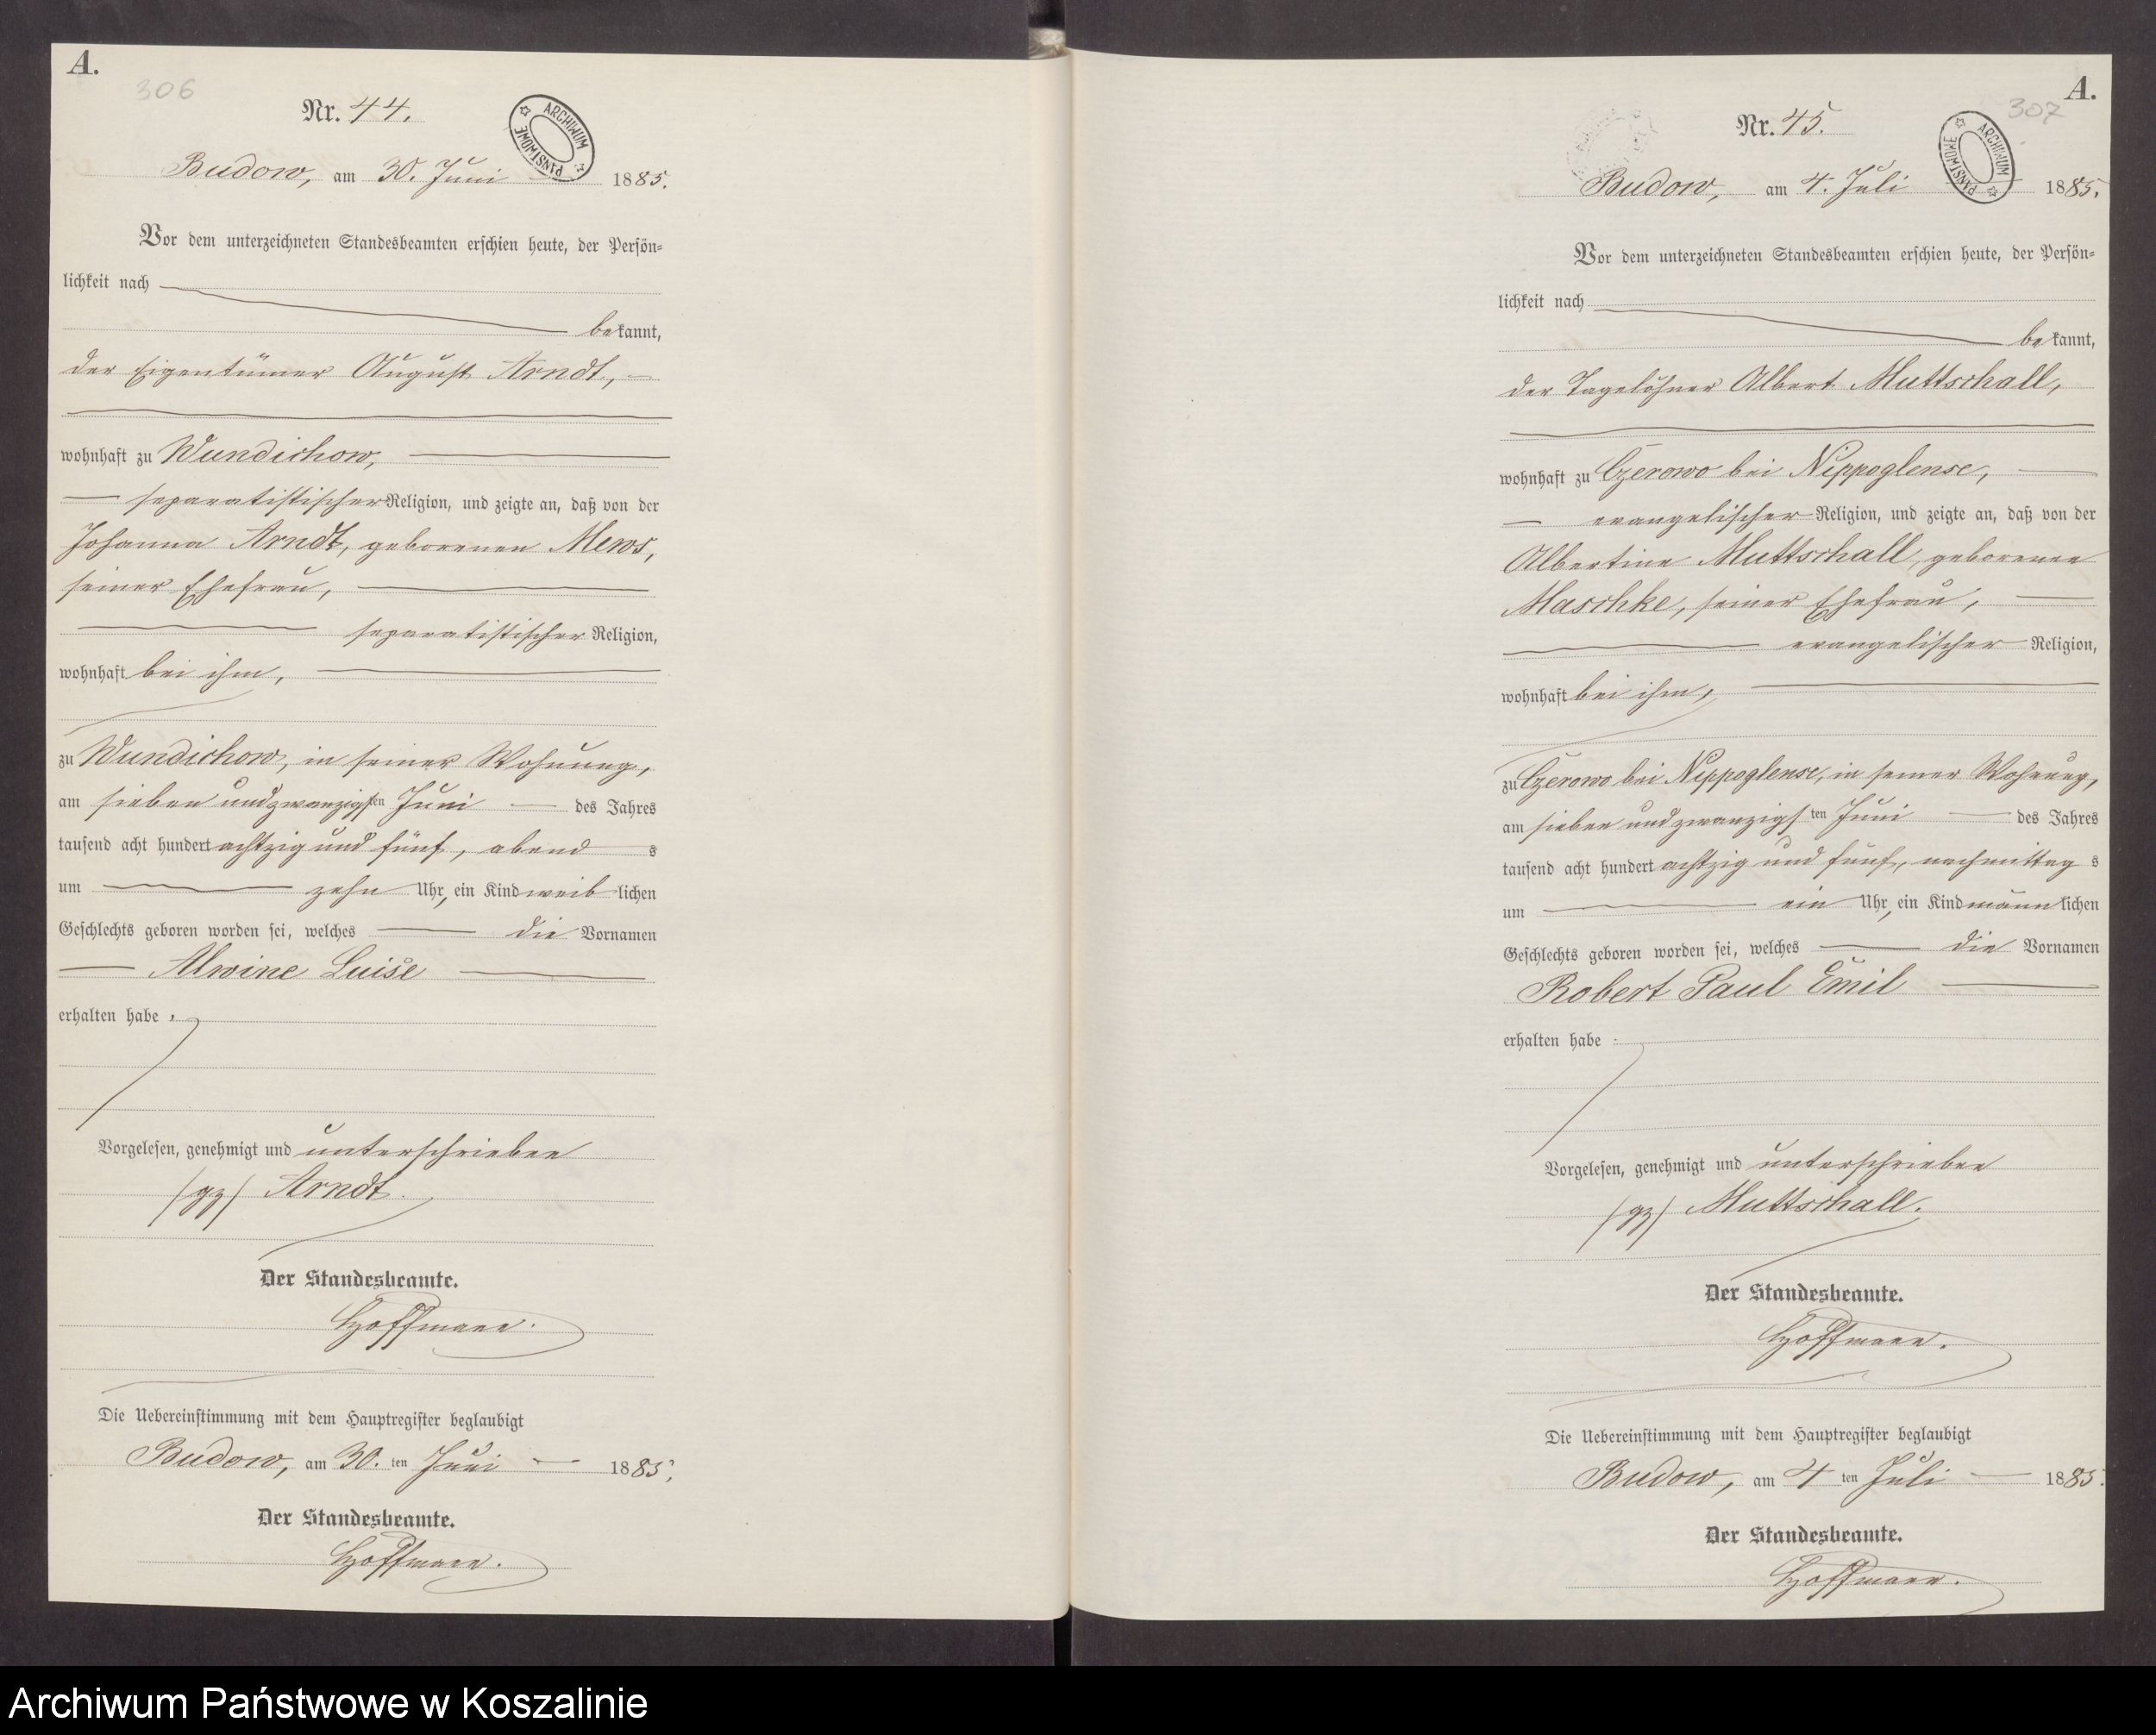 A.
306
Nr. 44.
ARCHIWUM PAŃSTWOWE
Budow, am 30. Juni 1885.
Vor dem unterzeichneten Standesbeamten erschien heute, der Persön=
lichkeit nach
bekannt,
der Eigentümer August Arndt,
wohnhaft zu Wundichow,
separatistischer Religion, und zeigte an, daß von der
Johanna Arndt, geborenen Mews,
seiner Ehefrau,
separatistischer Religion,
wohnhaft bei ihm,
zu Wundichow, in seiner Wohnung,
am sieben und zwanzigsten Juni des Jahres
tausend acht hundert achtzig und fünf, abends
um zehn Uhr, ein Kind weiblichen
Geschlechts geboren worden sei, welches die Vornamen
Alwine Luise
erhalten habe.
Vorgelesen, genehmigt und unterschrieben
(gz) Arndt.
Der Standesbeamte.
Hoffmann.
Die Uebereinstimmung mit dem Hauptregister beglaubigt
Budow, am 30. ten Juni 1885.
Der Standesbeamte.
Hoffmann.
A.
307
Nr. 45.
ARCHIWUM PAŃSTWOWE
Budow, am 4. Juli 1885.
Vor dem unterzeichneten Standesbeamten erschien heute, der Persön=
lichkeit nach
bekannt,
der Tagelöhner Albert Muttschall,
wohnhaft zu Czerowo bei Nippoglense,
evangelischer Religion, und zeigte an, daß von der
Albertine Muttschall, geborenen
Maschke, seiner Ehefrau,
evangelischer Religion,
wohnhaft bei ihm,
zu Czerowo bei Nippoglense, in seiner Wohnung,
am sieben und zwanzigsten Juni des Jahres
tausend acht hundert achtzig und fünf, nachmittags
um ein Uhr, ein Kind männlichen
Geschlechts geboren worden sei, welches die Vornamen
Robert Paul Emil
erhalten habe.
Vorgelesen, genehmigt und unterschrieben
(gz) Muttschall.
Der Standesbeamte.
Hoffmann.
Die Uebereinstimmung mit dem Hauptregister beglaubigt
Budow, am 4 ten Juli 1885.
Der Standesbeamte.
Hoffmann.
Archiwum Państwowe w Koszalinie